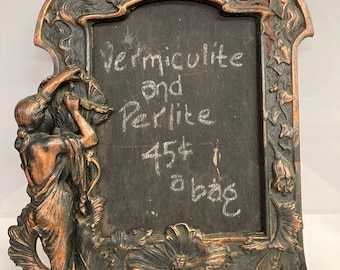 Vermiculite
and
Perlite
45¢
a bag